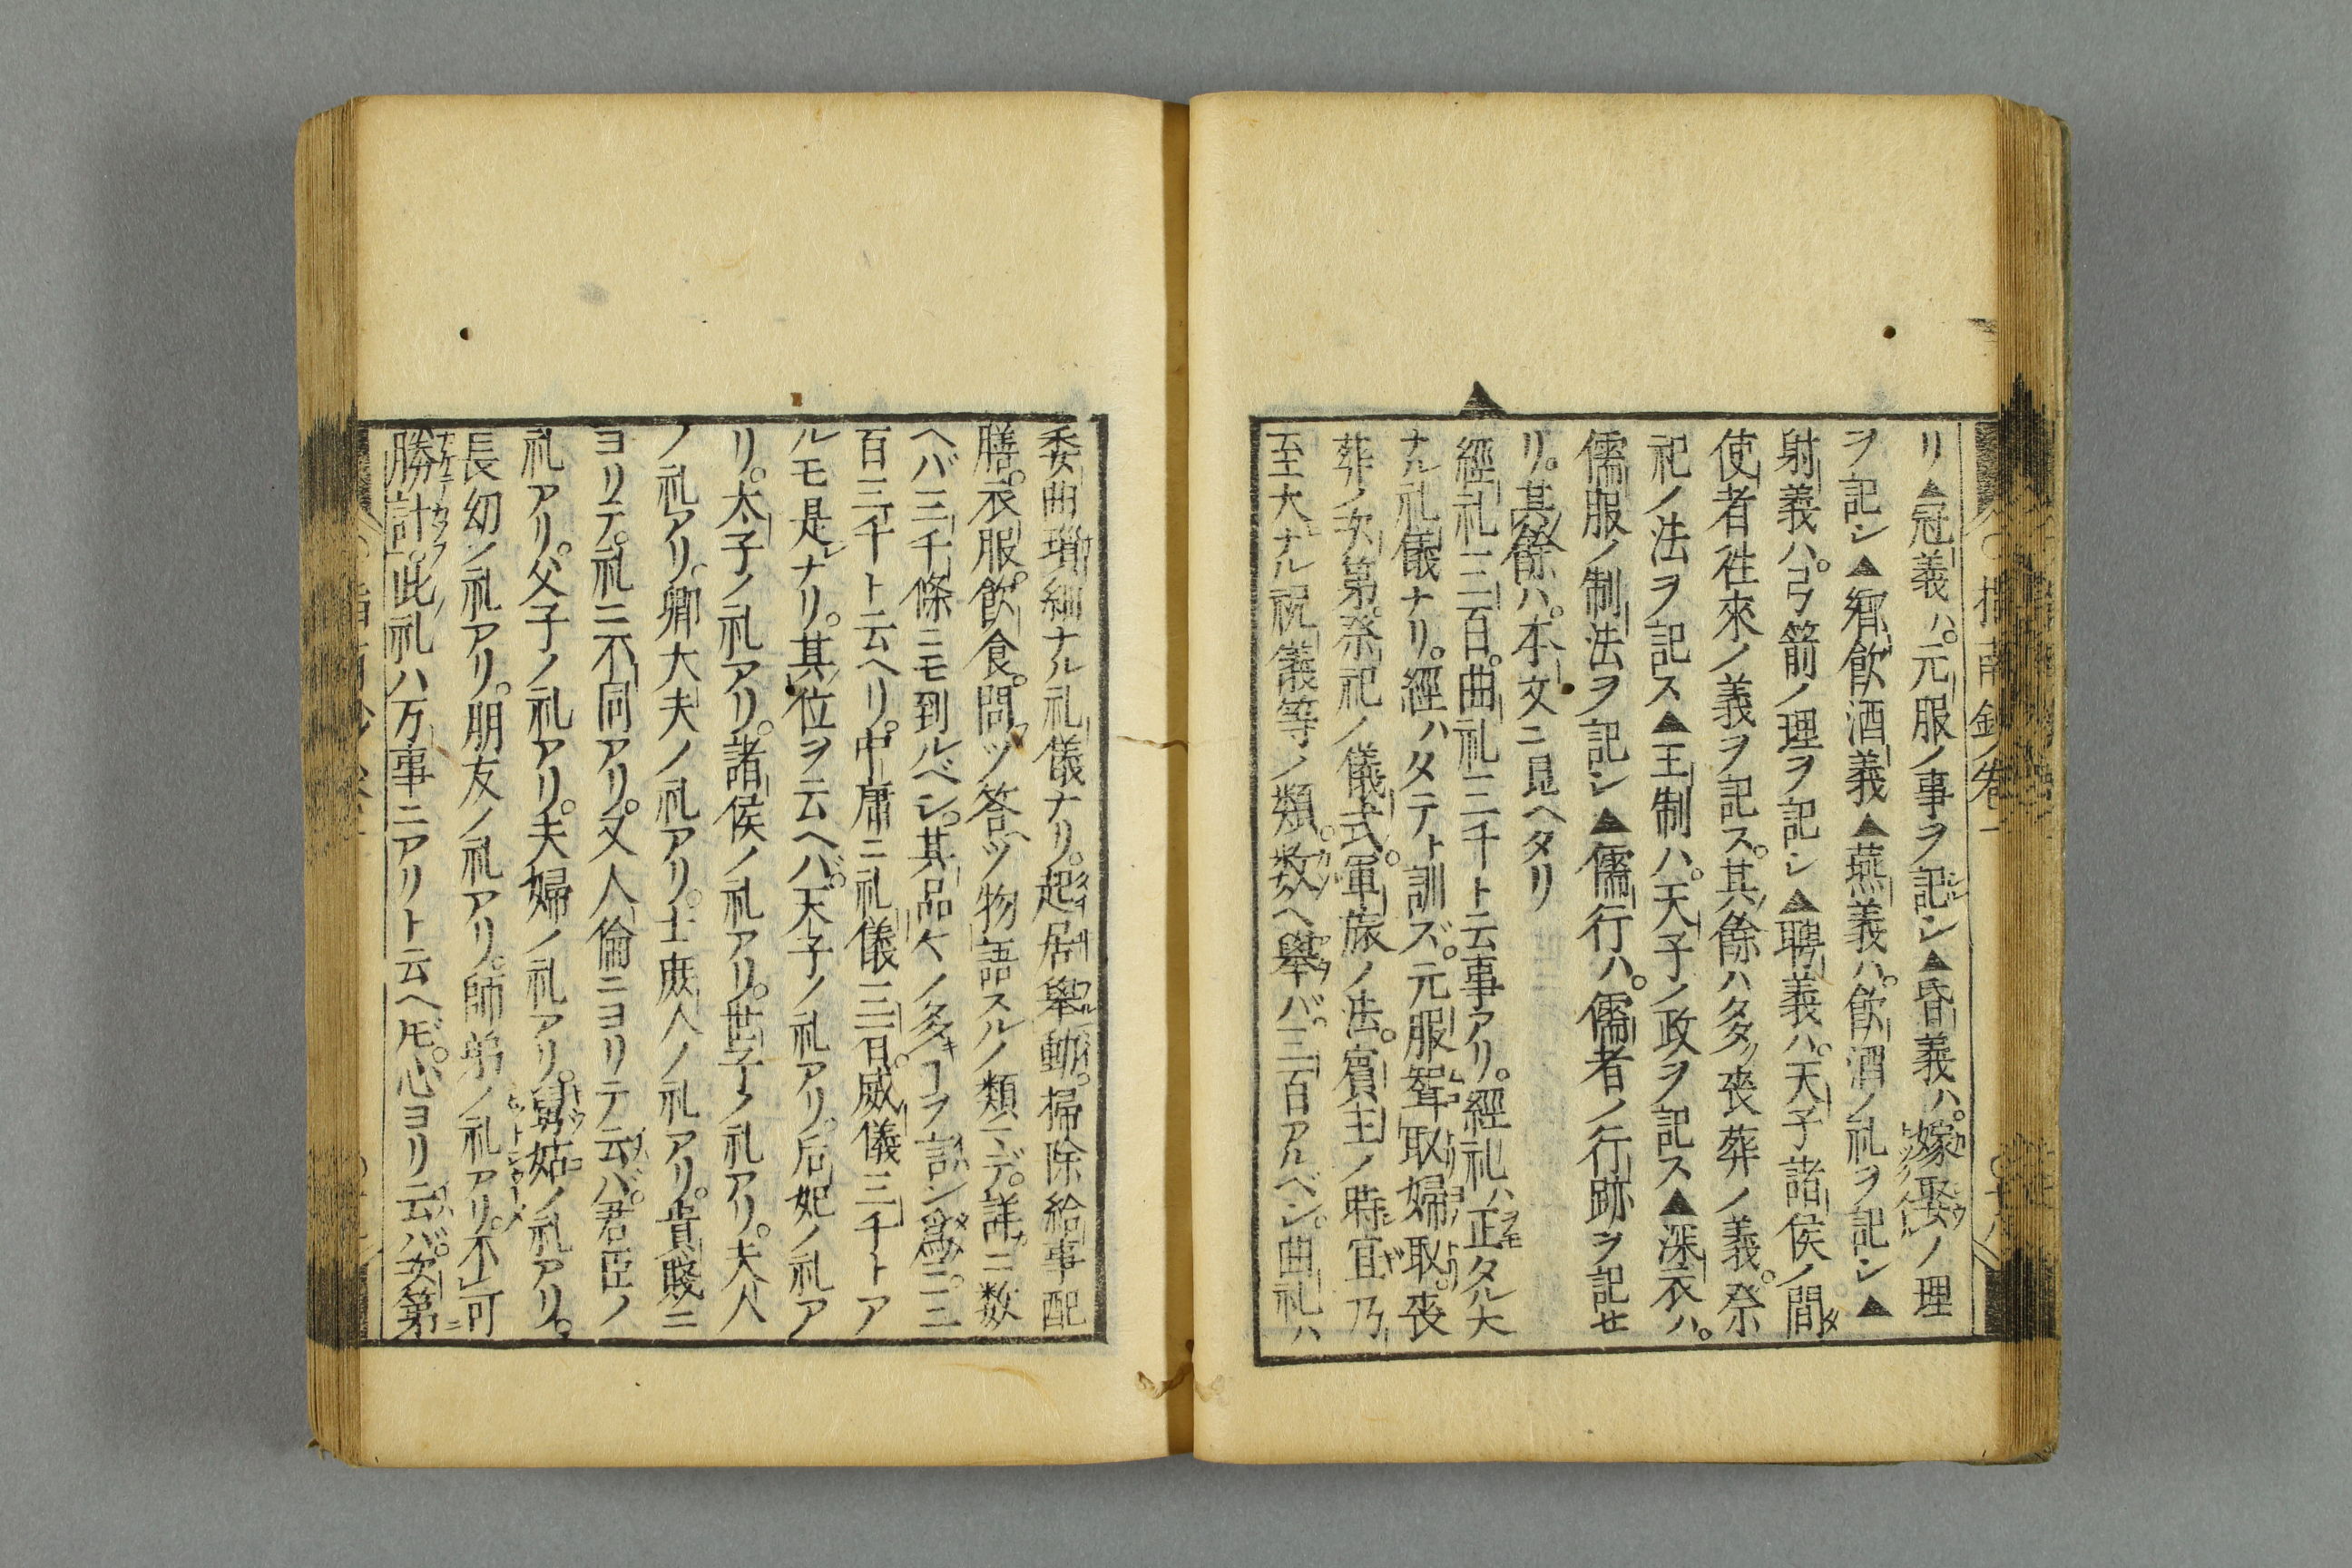 指南鈔ノ巻一
リ▲冠義ハ。元服ノ事ヲ記シ▲昏義ハ。嫁娶ノ理
ヲ記シ▲郷飲酒義▲燕義ハ。飲酒ノ礼ヲ記シ▲
射義ハ。弓箭ノ理ヲ記シ▲聘義ハ。天子諸侯ノ間
使者徃來ノ義ヲ記ス。其餘ハ多ク丧葬ノ義。祭
祀ノ法ヲ記ス▲王制ハ。天子ノ政ヲ記ス▲深衣ハ。
儒服ノ制法ヲ記シ▲儒行ハ。儒者ノ行跡ヲ記セ
リ。其餘ハ。本文ニ見ヘタリ
▲經礼三百。曲礼三千ト云事アリ。經礼ハ正タル大
ナル礼儀ナリ。經ハタテト訓ズ。元服聟取婦取。丧
葬ノ次第。祭祀ノ儀式。軍旅ノ法。賓主ノ時宜乃
至大ナル祝儀等ノ類。数ヘ擧バ。三百アルベシ。曲礼ハ
委曲瑣細ナル礼儀ナリ。起居擧動。掃除給事配
膳。衣服。飲食。問ツ答ツ物語スルノ類マデ。詳ニ数
ヘバ三千條ニモ到ルベシ。其品々ノ多キヿヲ言ン為ニ。三
百三千ト云ヘリ。中庸ニ礼儀三百。威儀三千トア
ルモ是ナリ。其位ヲ云ヘバ。天子ノ礼アリ。后妃ノ礼ア
リ。太子ノ礼アリ。諸侯ノ礼アリ。世子ノ礼アリ。夫人
ノ礼アリ。卿大夫ノ礼アリ。士庶人ノ礼アリ。貴賤ニ
ヨリテ。礼ニ不同アリ。又人倫ニヨリテ云バ。君臣ノ
礼アリ。父子ノ礼アリ。夫婦ノ礼アリ。舅姑ノ礼アリ。
長幼ノ礼アリ。朋友ノ礼アリ。師弟ノ礼アリ。不可
勝計。此礼ハ万事ニアリト云ヘ𪜈。心ヨリ云バ。次第ニ